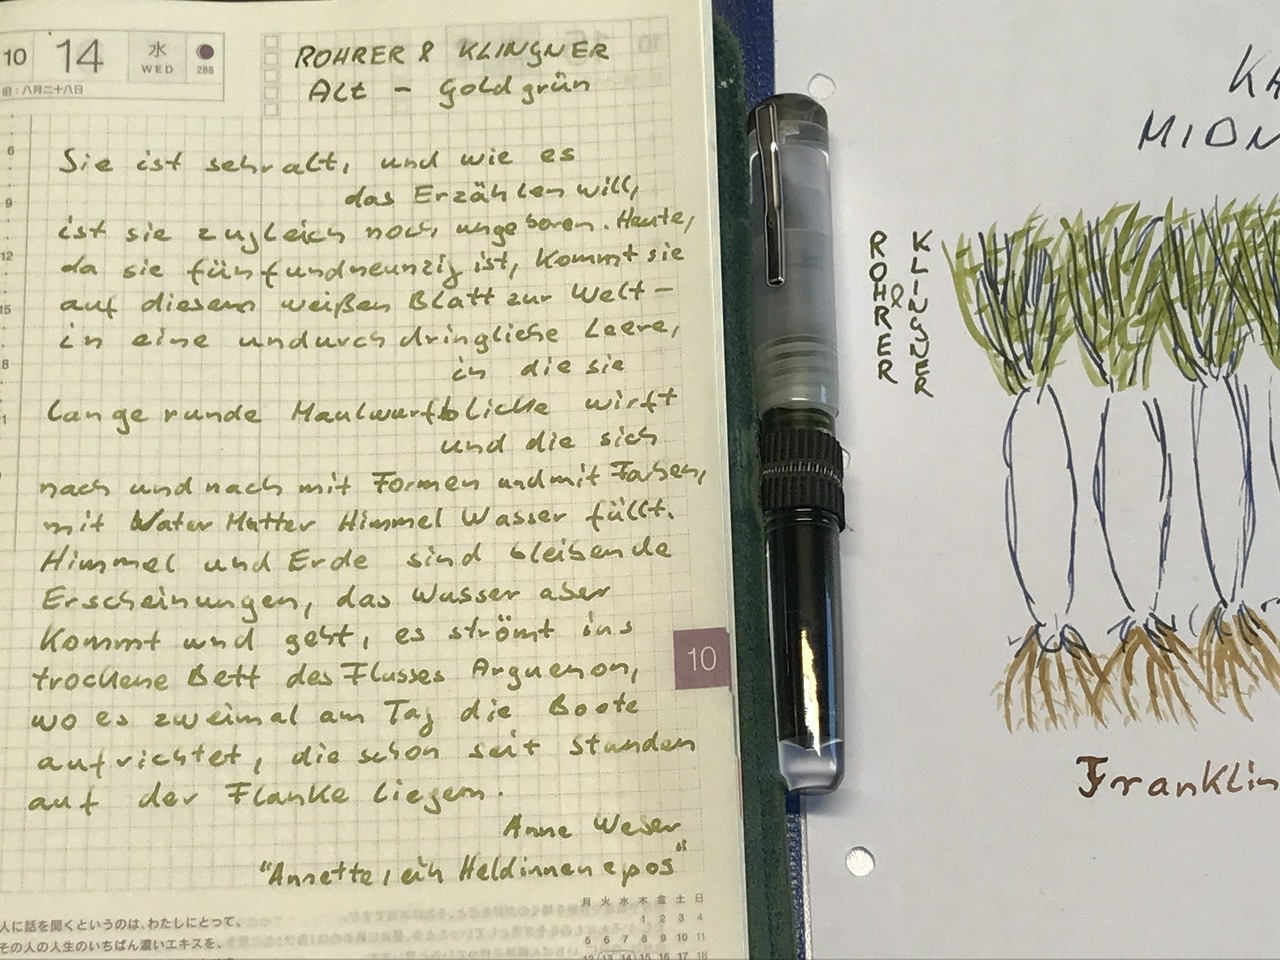 10 14 水 WED 288
旧:八月二十八日
ROHRER & KLINGNER
Alt - Goldgrün
6
Sie ist sehr alt, und wie es
das Erzählen will,
9
ist sie zugleich noch ungeboren. Heute,
12
da sie fünfundneunzig ist, kommt sie
auf diesem weißen Blatt zur Welt –
15
in eine undurchdringliche Leere,
8
in die sie
1
lange runde Maulwurfblicke wirft
und die sich
nach und nach mit Formen und mit Farben,
mit Vater Mutter Himmel Wasser füllt.
Himmel und Erde sind bleibende
Erscheinungen, das Wasser aber
kommt und geht, es strömt ins
10
trockene Bett des Flusses Arguenon,
wo es zweimal am Tag die Boote
aufrichtet, die schon seit Stunden
auf der Flanke liegen.
Anne Weber
"Annette, ein Heldinnenepos"
人に話を聞くというのは、わたしにとって、
その人の人生のいちばん濃いエキスを、
月 火 水 木 金 土 日
1 2 3 4
5 6 7 8 9 10 11
12 13 14 15 16 17 18
KA
MIDN
ROHRER
&
KLINGNER
Franklin